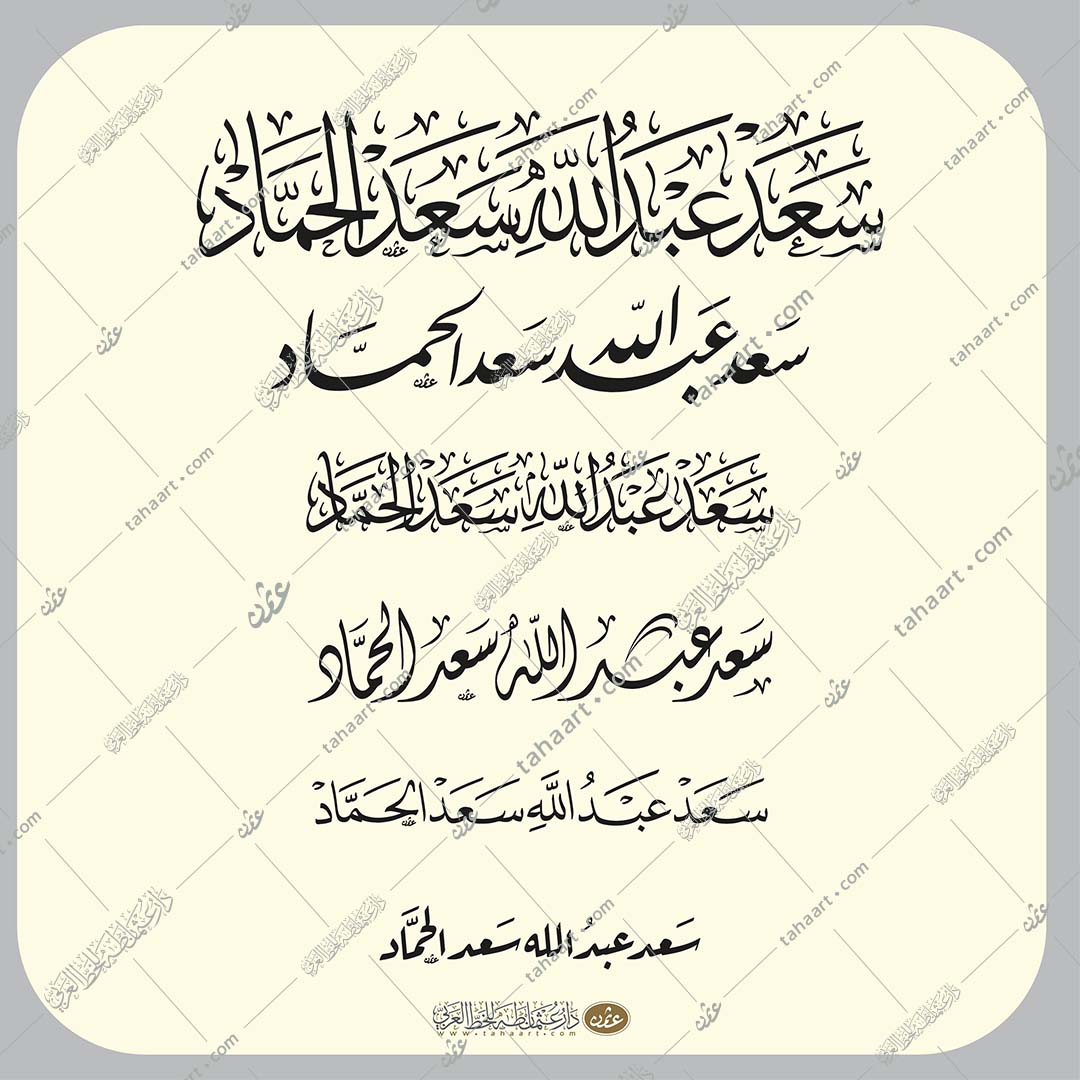 سَعَدْ عَبَدُ اللّٰهِ سَعَدْ الحَمَّادْ
سَعد عَبد اللّه سَعد الحمَّاد
سَعَدْ عَبْدُ اللّٰهِ سَعَدْ الحَمَّادْ
سَعد عبد اللّٰهُ سَعد الحمَّاد
سَعَدْ عَبْدُ اللَّهِ سَعَدْ الحَمَّادْ
سَعد عبدُ الله سَعد الحمَّاد
دار عثمان طه للخط العربي
عثمان
www.tahaart.com
tahaart.com